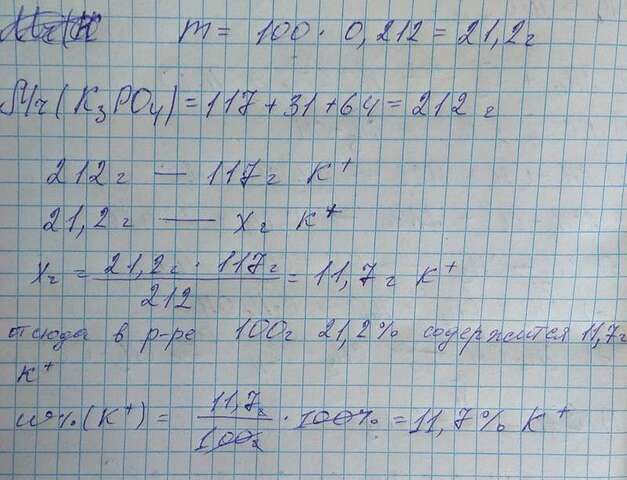 m = 100 · 0,212 = 21,2г
Mr(K₃PO₄) = 117 + 31 + 64 = 212 г
212 г — 117 г K⁺
21,2 г — Xг K⁺
Xг = 21,2г · 117г / 212 = 11,7 г K⁺
отсюда в р-ре 100г 21,2% содержится 11,7г
K⁺
ω%(K⁺) = 11,7г / 100г · 100% = 11,7% K⁺